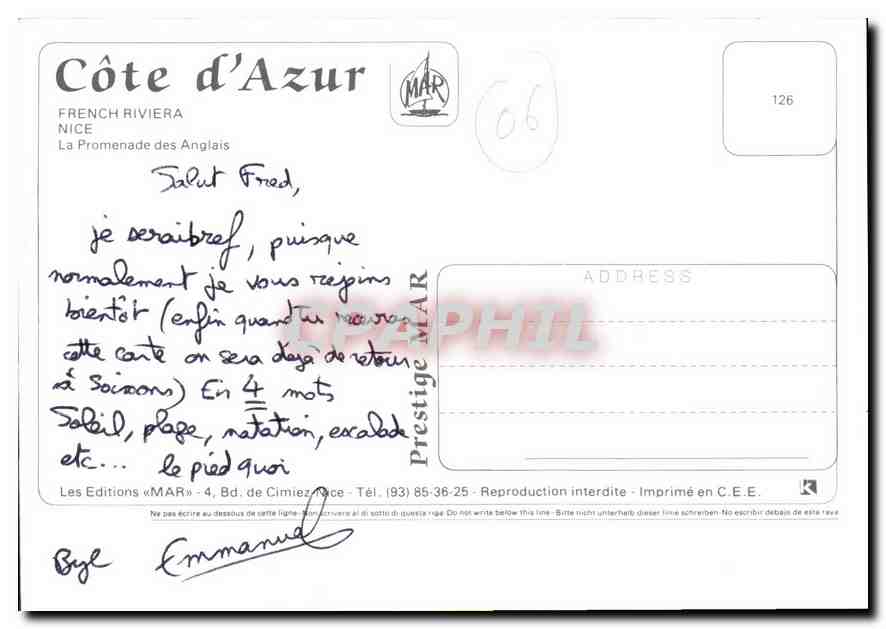 Côte d'Azur
MAR
FRENCH RIVIERA
NICE
La Promenade des Anglais
06
126
Salut Fred,
je seraibref, puisque
normalement je vous rejoins
bientôt (enfin quand tu recevras
cette carte on sera déjà de retour
à Soissons) En 4 mots
Soleil, plage, natation, escalade
etc... le pied quoi
Prestige MAR
ADDRESS
CPAPHIL
Les Editions «MAR» - 4, Bd. de Cimiez-Nice - Tél. (93) 85-36-25 - Reproduction interdite - Imprimé en C.E.E.
K
Ne pas écrire au dessous de cette ligne - Non scrivere al di sotto di questa riga Do not write below this line - Bitte nicht unterhalb dieser linie schreiben - No escribir debajo de esta raya
Bye Emmanuel